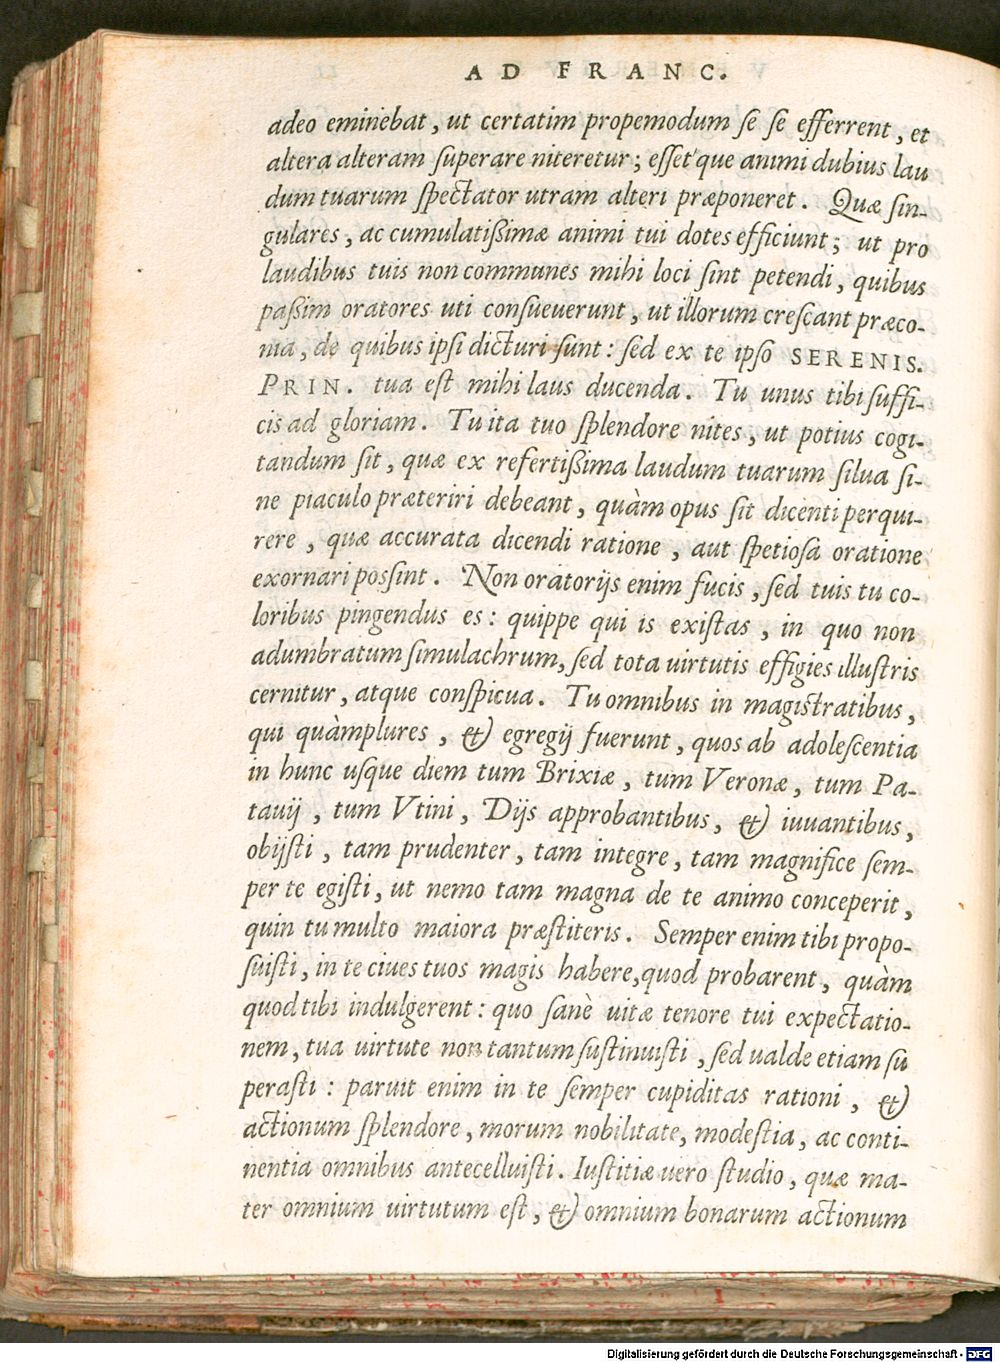 AD FRANC.
adeo eminebat, ut certatim propemodum se se efferrent, et
altera alteram superare niteretur; esset que animi dubius lau
dum tuarum spectator utram alteri præponeret. Quæ sin-
gulares, ac cumulatißimæ animi tui dotes efficiunt; ut pro
laudibus tuis non communes mihi loci sint petendi, quibus
paßim oratores uti consueuerunt, ut illorum crescant præco-
nia, de quibus ipsi dicturi sunt: sed ex te ipso SERENIS.
PRIN. tua est mihi laus ducenda. Tu unus tibi suffi-
cis ad gloriam. Tu ita tuo splendore nites, ut potius cogi-
tandum sit, quæ ex refertißima laudum tuarum silua si-
ne piaculo præteriri debeant, quàm opus sit dicenti perqui-
rere, quæ accurata dicendi ratione, aut spetiosa oratione
exornari possint. Non oratorijs enim fucis, sed tuis tu co-
loribus pingendus es: quippe qui is existas, in quo non
adumbratum simulachrum, sed tota uirtutis effigies illustris
cernitur, atque conspicua. Tu omnibus in magistratibus,
qui quàmplures, et egregij fuerunt, quos ab adolescentia
in hunc usque diem tum Brixiæ, tum Veronæ, tum Pa-
tauij, tum Vtini, Dijs approbantibus, et iuuantibus,
obijsti, tam prudenter, tam integre, tam magnifice sem-
per te egisti, ut nemo tam magna de te animo conceperit,
quin tu multo maiora præstiteris. Semper enim tibi propo-
suisti, in te ciues tuos magis habere, quod probarent, quàm
quod tibi indulgerent: quo sanè uitæ tenore tui expectatio-
nem, tua uirtute non tantum sustinuisti, sed ualde etiam su
perasti: paruit enim in te semper cupiditas rationi, et
actionum splendore, morum nobilitate, modestia, ac conti-
nentia omnibus antecelluisti. Iustitiæ uero studio, quæ ma-
ter omnium uirtutum est, et omnium bonarum actionum
Digitalisierung gefördert durch die Deutsche Forschungsgemeinschaft - DFG